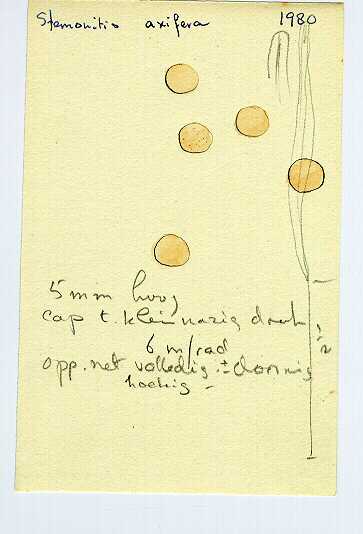 Stemonitis axifera 1980
5 mm hoog
cap t. klein mazig draad
6 m/rad
opp. net volledig ± doornig
hoekig -
1/2